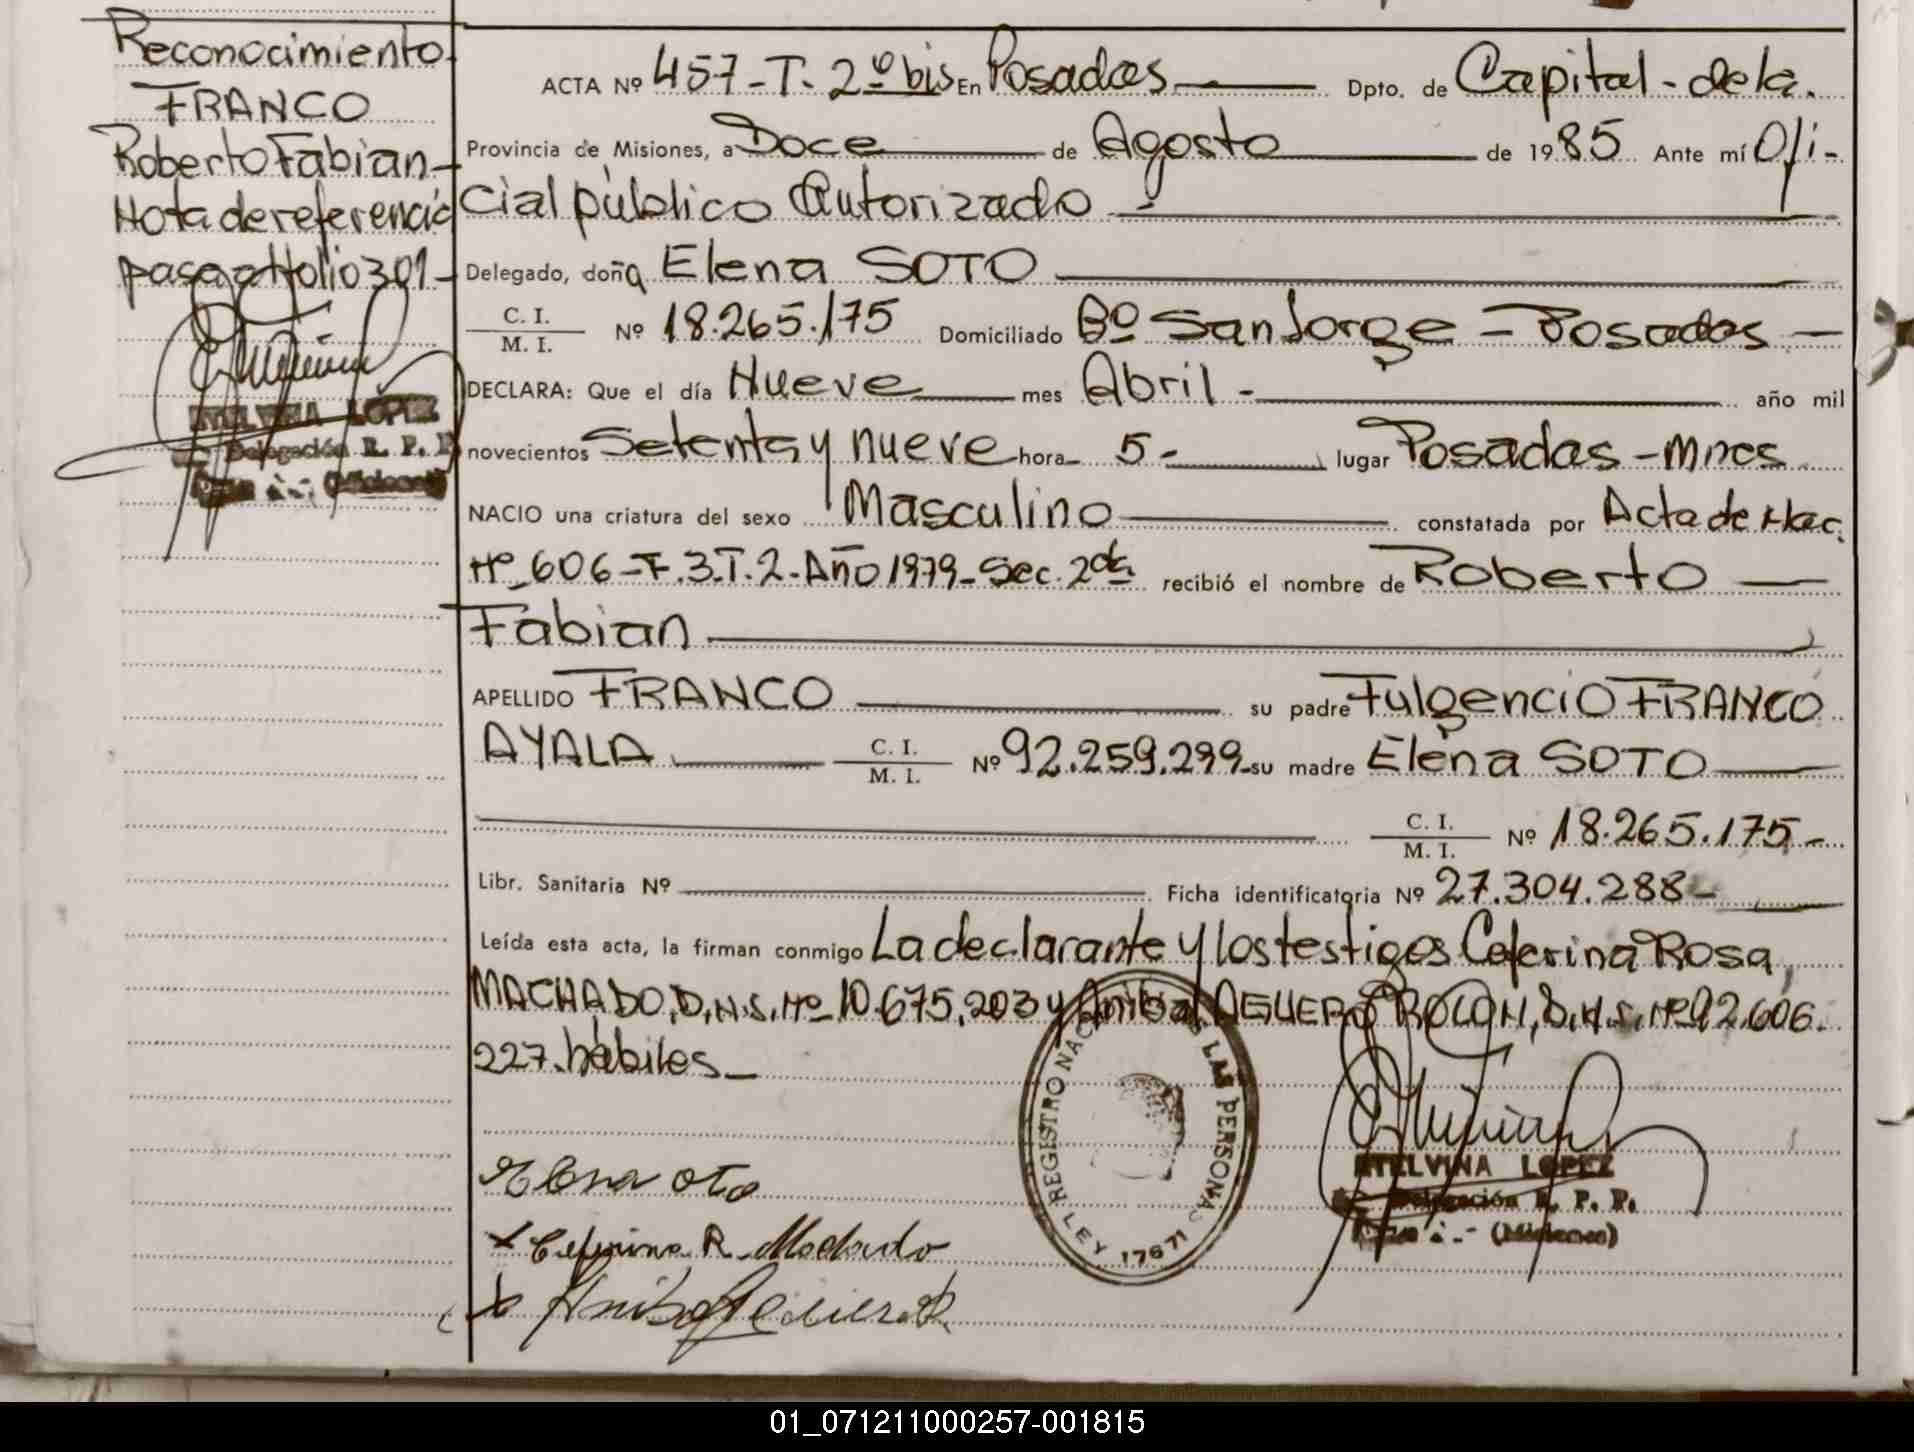 Reconocimiento
FRANCO
Roberto Fabian -
Nota de referencia
pasa a folio 301 -
ETELVINA LOPEZ
Delegación R. P. P.
(Misiones)
ACTA Nº 457 - T. 2º bis En Posadas Dpto. de Capital - de la
Provincia de Misiones, a Doce de Agosto de 1985 Ante mí Ofi-
cial público Autorizado -
Delegado, doña Elena SOTO
C. I. / M. I. Nº 18.265.175 Domiciliado Bº San Jorge - Posadas -
DECLARA: Que el día Nueve mes Abril - año mil
novecientos Setenta y nueve hora 5 - lugar Posadas - Mnes
NACIO una criatura del sexo Masculino constatada por Acta de Nac.
Nº 606 - F. 3. T. 2 - Año 1979 - Sec. 2da recibió el nombre de Roberto
Fabian
APELLIDO FRANCO su padre Fulgencio FRANCO
AYALA C. I. / M. I. Nº 92.259.299 su madre Elena SOTO
C. I. / M. I. Nº 18.265.175 -
Libr. Sanitaria Nº Ficha identificatoria Nº 27.304.288 -
Leída esta acta, la firman conmigo La declarante y los testigos Ceferina Rosa
MACHADO, D.N.I. Nº 10.675.203 y Anibal AGUERO ROLON, D.N.I. Nº 92.606.
227. hábiles -
REGISTRO NAC LAS PERSONAS
LEY 17671
ETELVINA LOPEZ
Delegación R. P. P.
(Misiones)
Elena oto
x Ceferina R. Machado
01_071211000257-001815